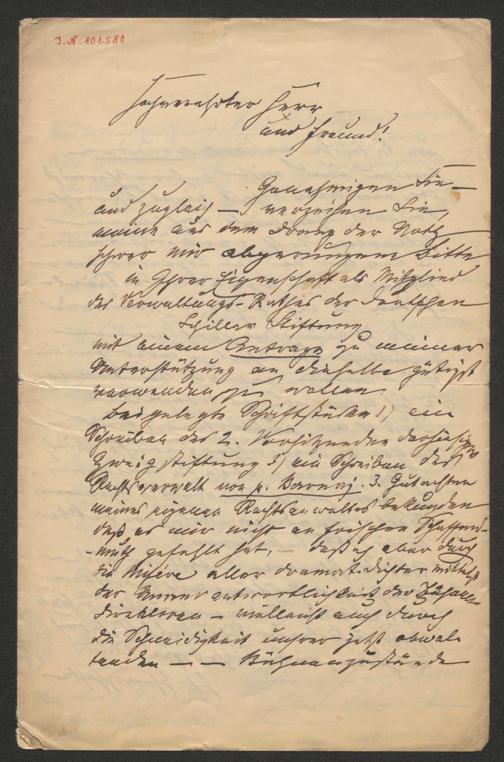 I.N. 101.580
Hochverehrter Herr
und Freund!
Genehmigen Sie —
und zugleich — verzeihen Sie,
meine aus dem Drang der Noth
schwer mir abgerungene Bitte
in Ihrer Eigenschaft als Mitglied
des Verwaltungs-Rathes der Deutschen
Schiller Stiftung
mit einem Antrage zu meiner
Unterstützung an dieselbe gütigst
verwenden zu wollen.
Beigelegte Schriftstücke 1) ein
Schreiben des 2. Vorsitzenden
Zweigstiftung 2) ein Schreiben des
Rechtsanwalt von 3. Gutachten
meines eigenen Rechtsanwaltes bekunden
daß es mir nicht an frischem Schaffens-
-muth gefehlt hat, — daß ich aber durch
die Misère aller dramat. dichter mittelst
der Unverantwortlichkeit der Bühnen-
direktoren — vielleicht auch durch
die Schneidigkeit unsrer jetzt obwal-
tenden — — Bühnenzustände